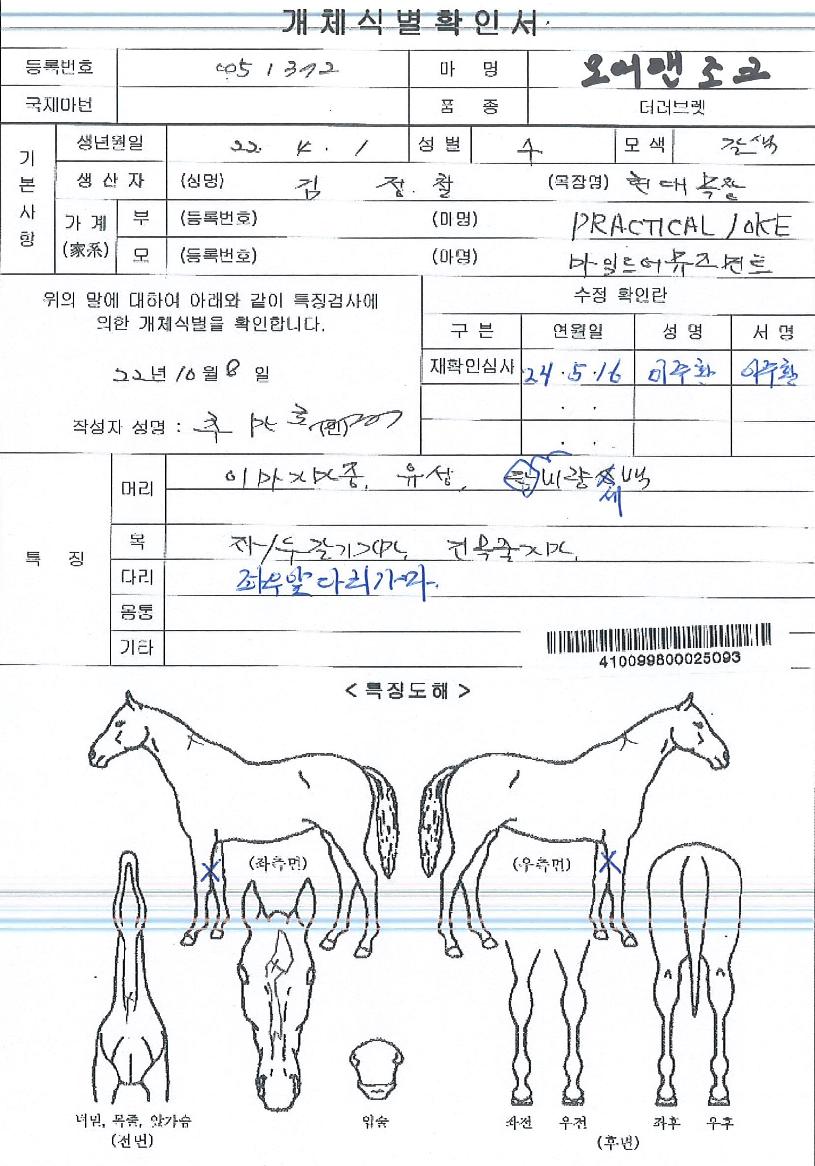 개체식별확인서
등록번호 0051372 마 명 오어맨조크
국제마번 품 종 더러브렛
기본사항
생년월일 22. 4. 1 성별 수 모색 갈색
생산자 (성명) 김 정. 찰 (목장명) 현대목장
가계 (家系) 부 (등록번호) (마명) PRACTICAL JOKE
모 (등록번호) (마명)
위의 말에 대하여 아래와 같이 특징검사에
의한 개체식별을 확인합니다.
22년 10월 8일
작성자 성명 : (인)
수정 확인란
구 분 연월일 성 명 서 명
재확인심사 24.5.16 이주환 이주환
. .
. .
특 징
머리 이마자모중, 유성, 비량세백
목 좌/우갈기자마,
다리 좌우앞다리가마.
몸통
기타
410099800025093
< 특징도해 >
(좌측면) (우측면)
너밀, 목줄, 앞가슴
(전면)
입술
좌전 우전 좌후 우후
(후면)